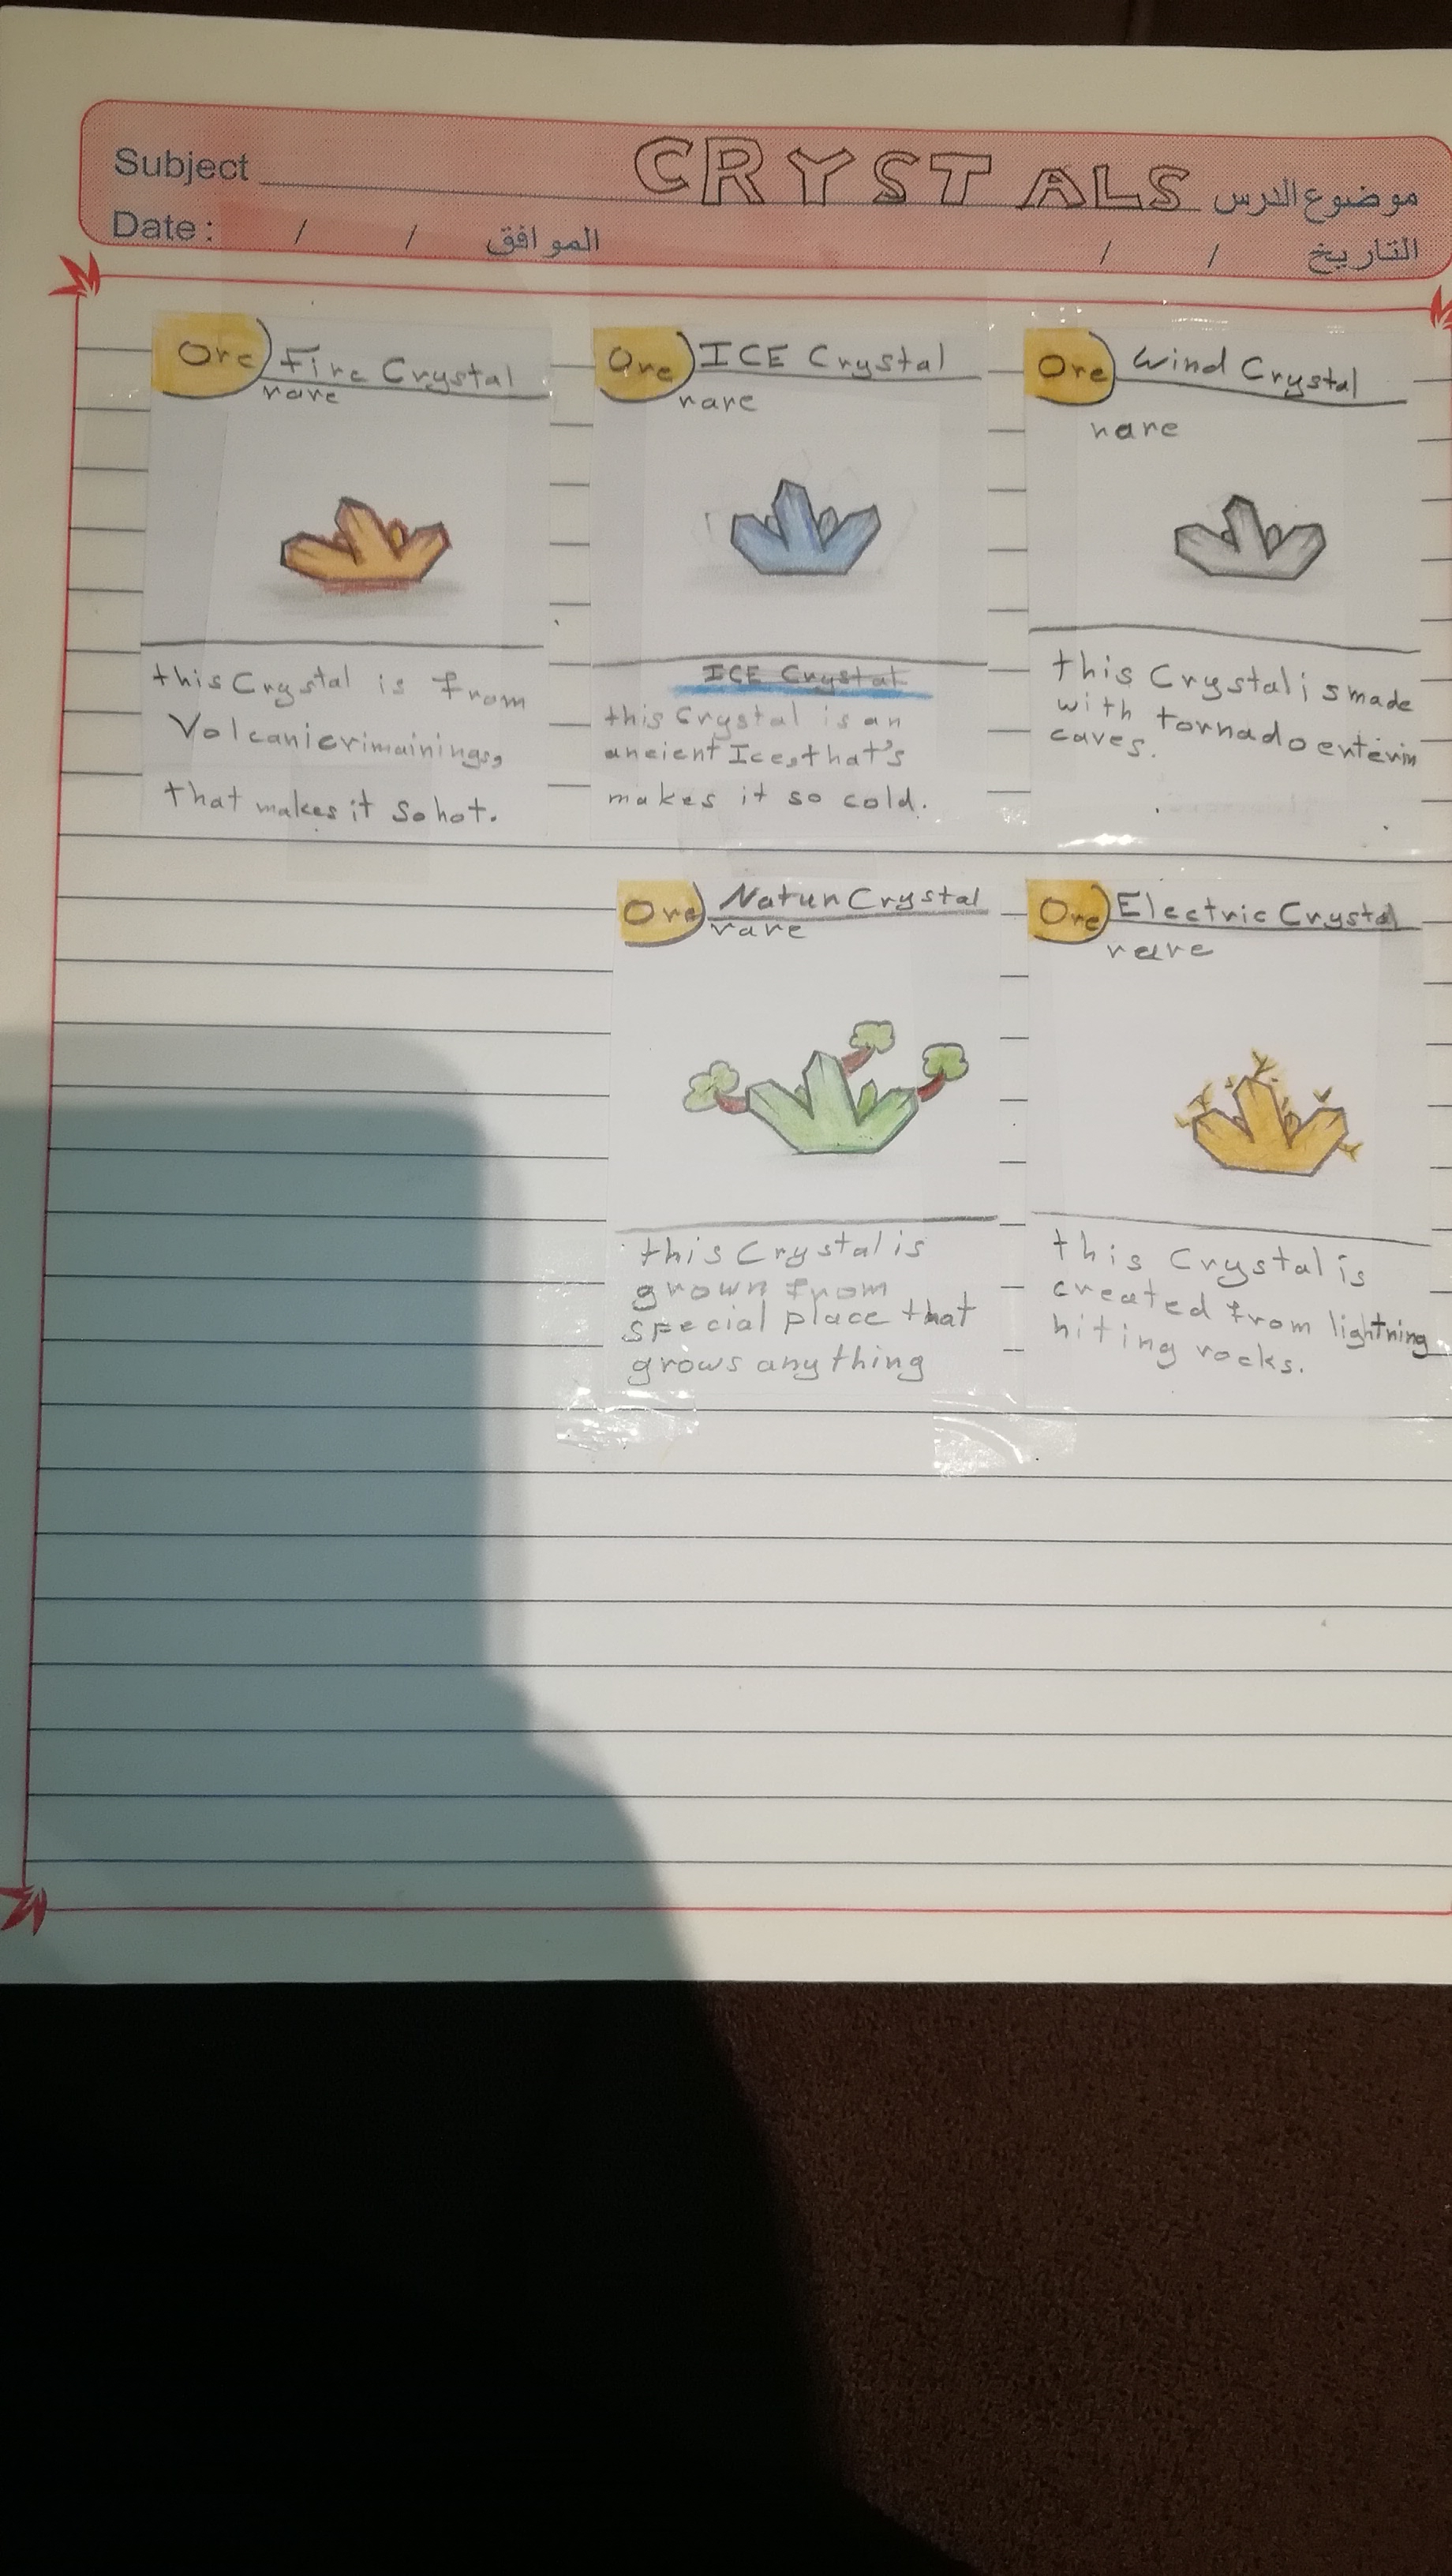 Subject CRYSTALS موضوع الدرس
Date: / / الموافق / / التاريخ
Ore Fire Crystal
rare
this Crystal is from
Volcanicrimainings,
that makes it so hot.
Ore ICE Crystal
rare
ICE Crystal
this Crystal is an
ancient Ice, that's
makes it so cold.
Ore Wind Crystal
rare
this Crystal is made
with tornado enterin
caves.
Ore Natur Crystal
rare
this Crystal is
grown from
special place that
grows anything
Ore Electric Crystal
rare
this Crystal is
created from lightning
hiting rocks.